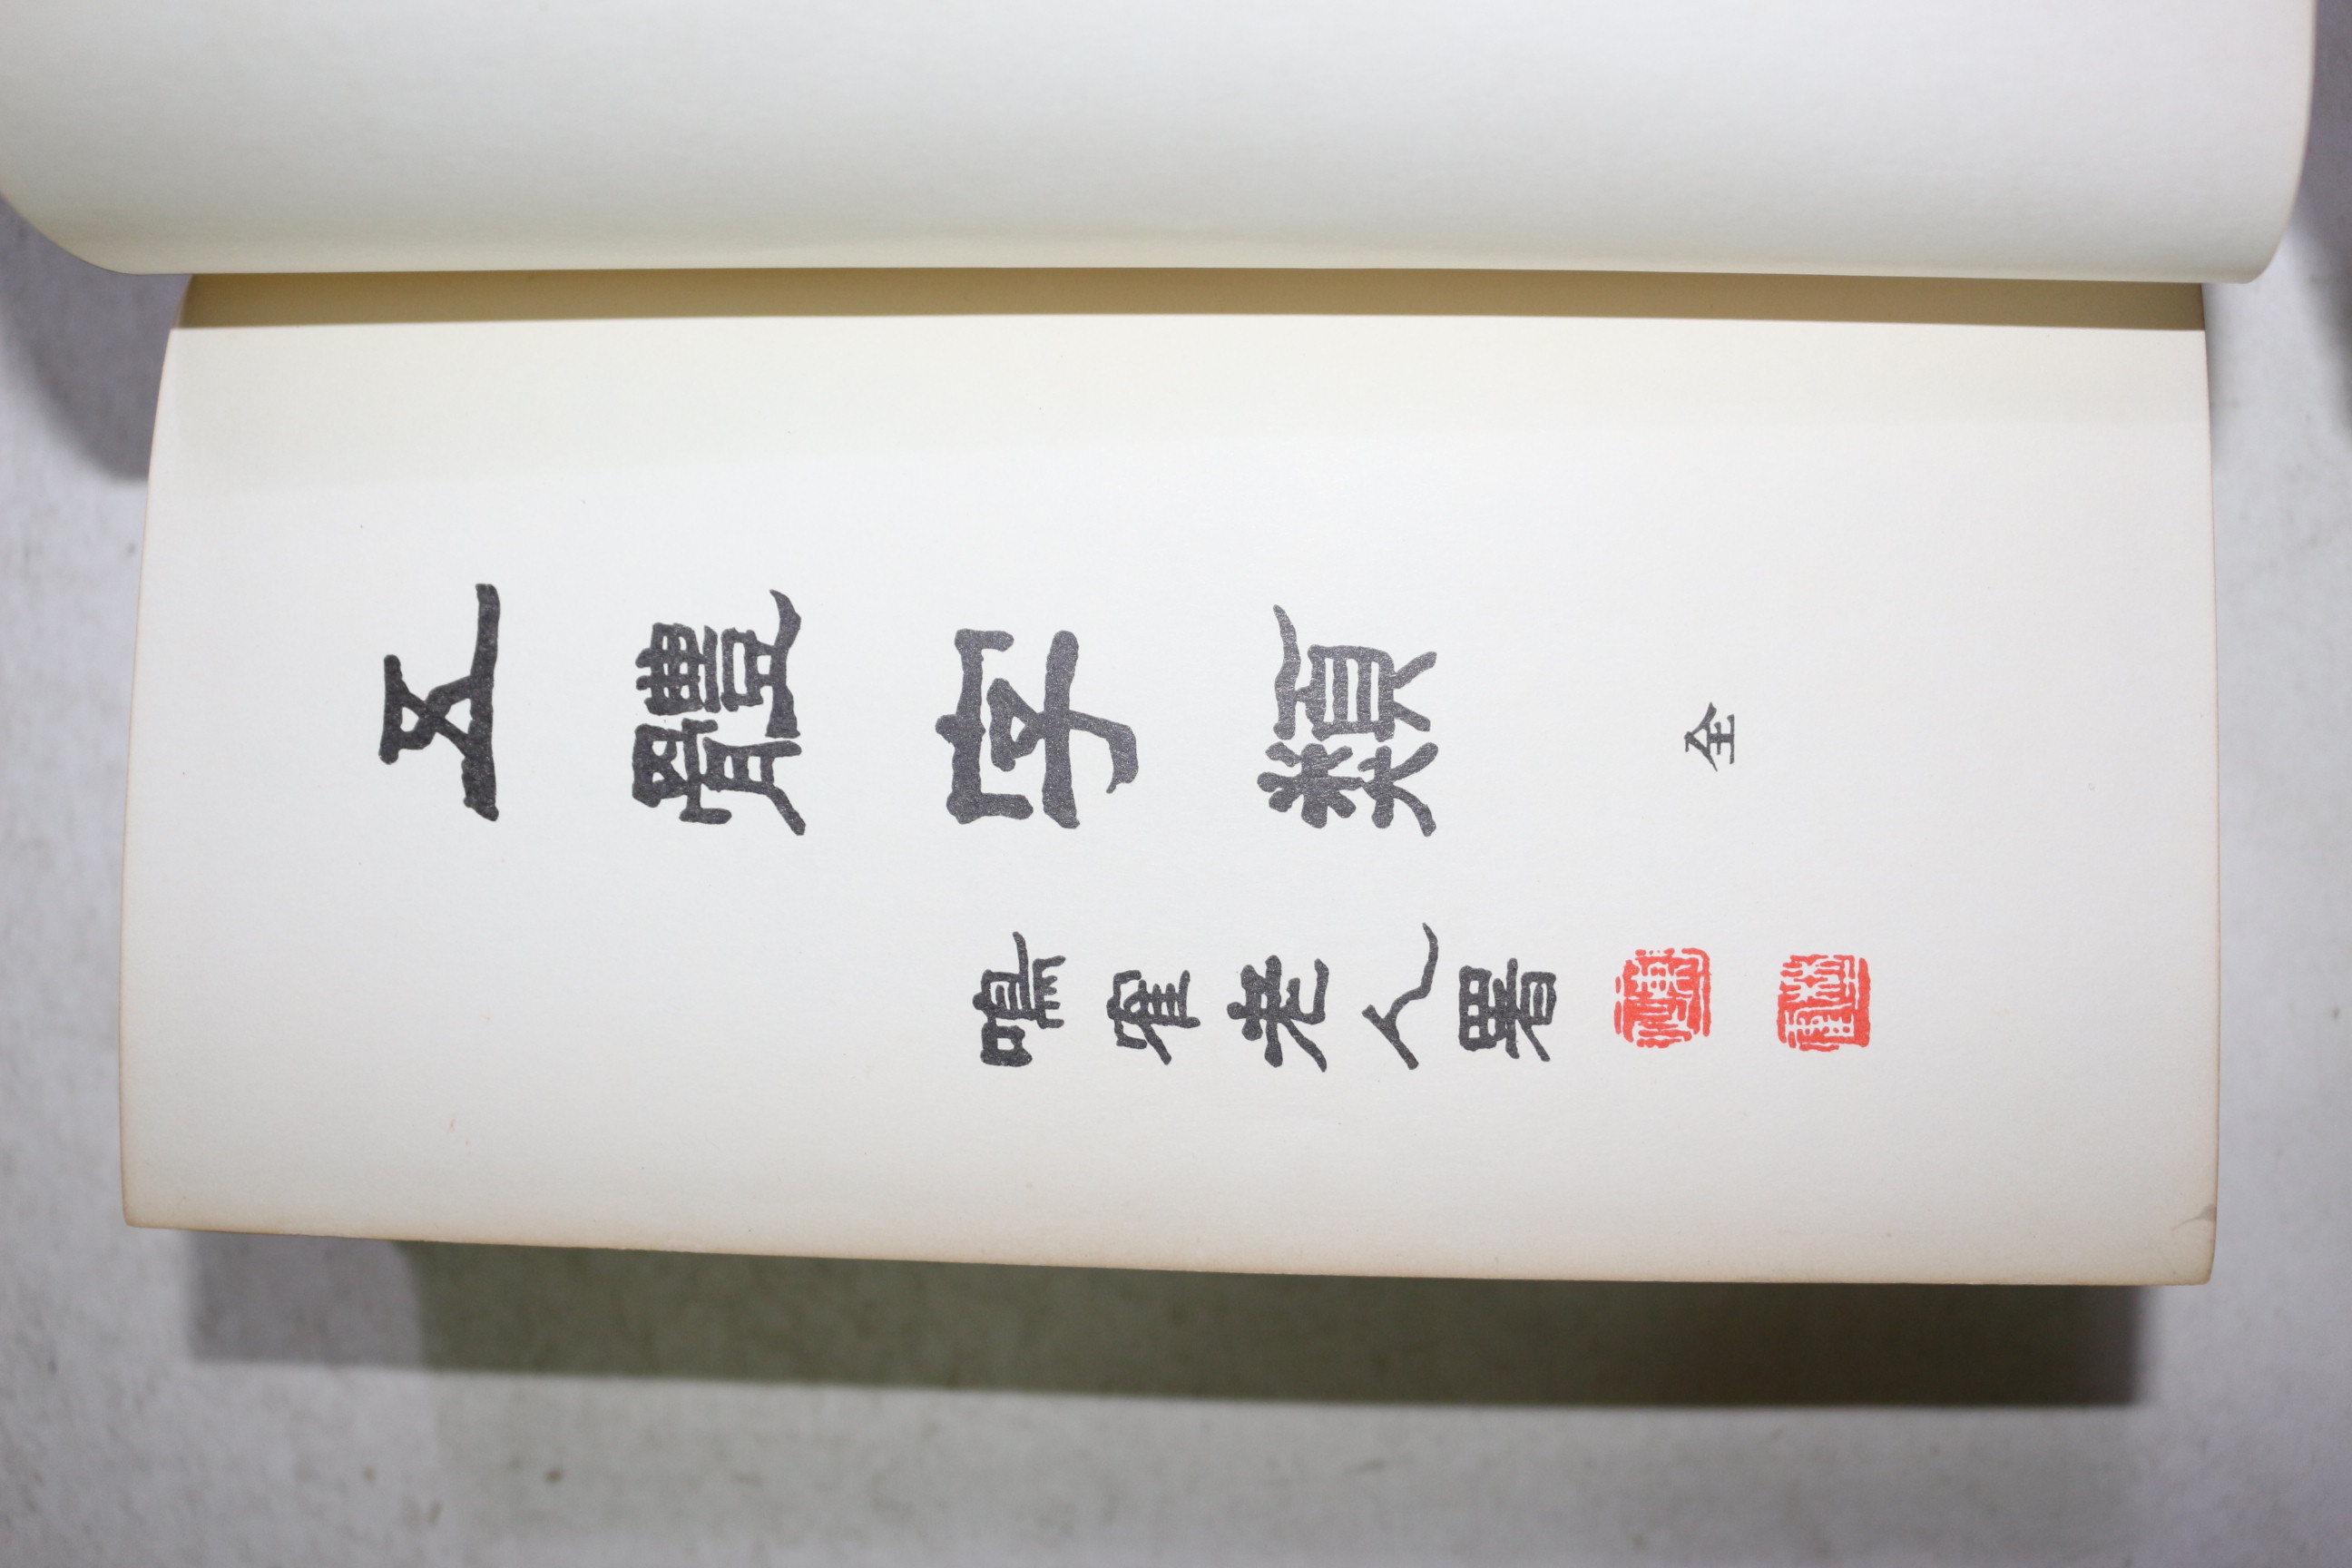 五體字類 全
鳴寉老人署